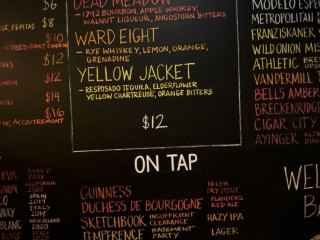 $6
ESE, PEPITAS $8
$10
$14
$14
$16
, ACCOUTREMENT
DEAD MEADOW
- 1792 BOURBON, APPLE WHISKEY,
WALNUT LIQUEUR, ANGOSTORN BITTERS
WARD EIGHT
- RYE WHISKEY, LEMON, ORANGE,
GRENADINE
YELLOW JACKET
- RESPOSADO TEQUILA, ELDERFLOWER
YELLOW CHARTREUSE, ORANGE BITTERS
$12
MODELO ESPE
METROPOLITAN
FRANZISKANER
WILD ONION MIS
ATHLETIC
VANDERMILL
BELLS AMBER
BRECKENRIDGE
CIGAR CITY
AYINGER
ON TAP
ITALY
CALIFORNIA
2020
SPAIN
2019
ITALY
2019
NEW ZEALAND
2020
GUINNESS IRISH DRY STOUT
DUCHESS DE BOURGOGNE FLANDERS RED ALE
SKETCHBOOK INSUFFICIENT CLEARANCE HAZY IPA
TEMPERENCE BASEMENT PARTY LAGER
WEL
BA